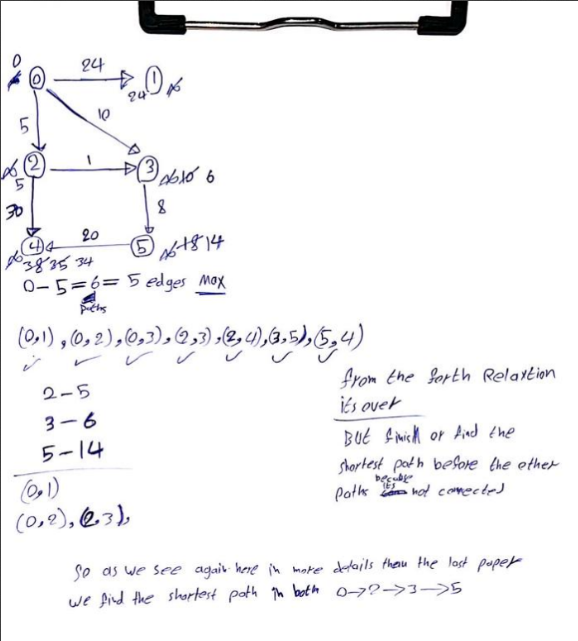 0
0 24 1
24
5 10
2 1 3 10 6
5
30 8
4 20 5 18 14
38 35 34
0-5=6= 5 edges max
paths
(0,1),(0,2),(0,3),(2,3),(2,4),(3,5),(5,4)
2-5
3-6
5-14
(0,1)
(0,2),(2,3),
from the forth Relaxtion
its over
But finish or find the
shortest path before the other
because
paths its not connected
So as we see again here in more details than the last paper
we find the shortest path in both 0→2→3→5